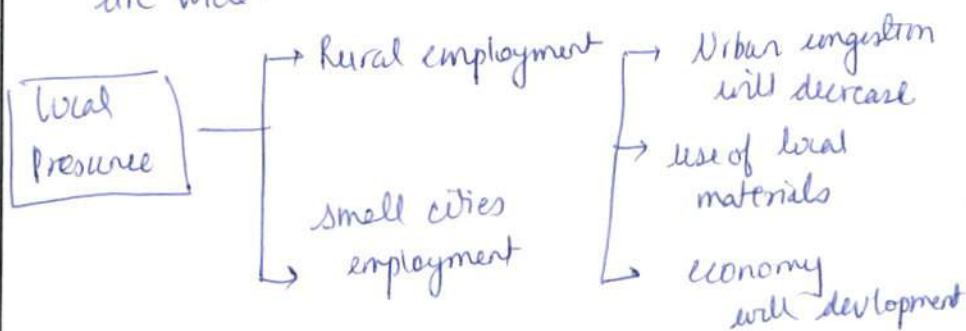 Local
Presence
Rural employment
small cities
employment
Urban congestion
will decrease
use of local
materials
economy
will devlopment